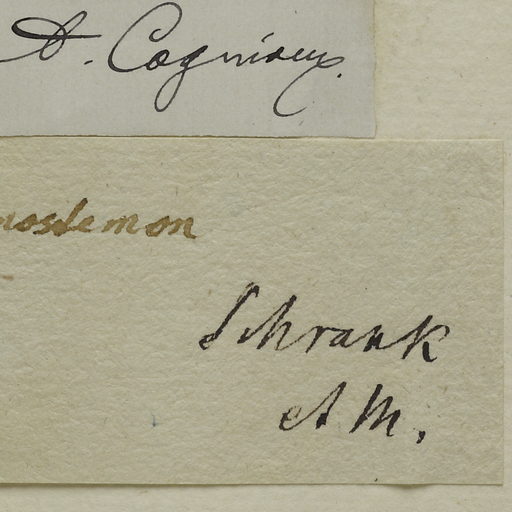 A. Cogniaux.
nosdemon
Schrank
A M.